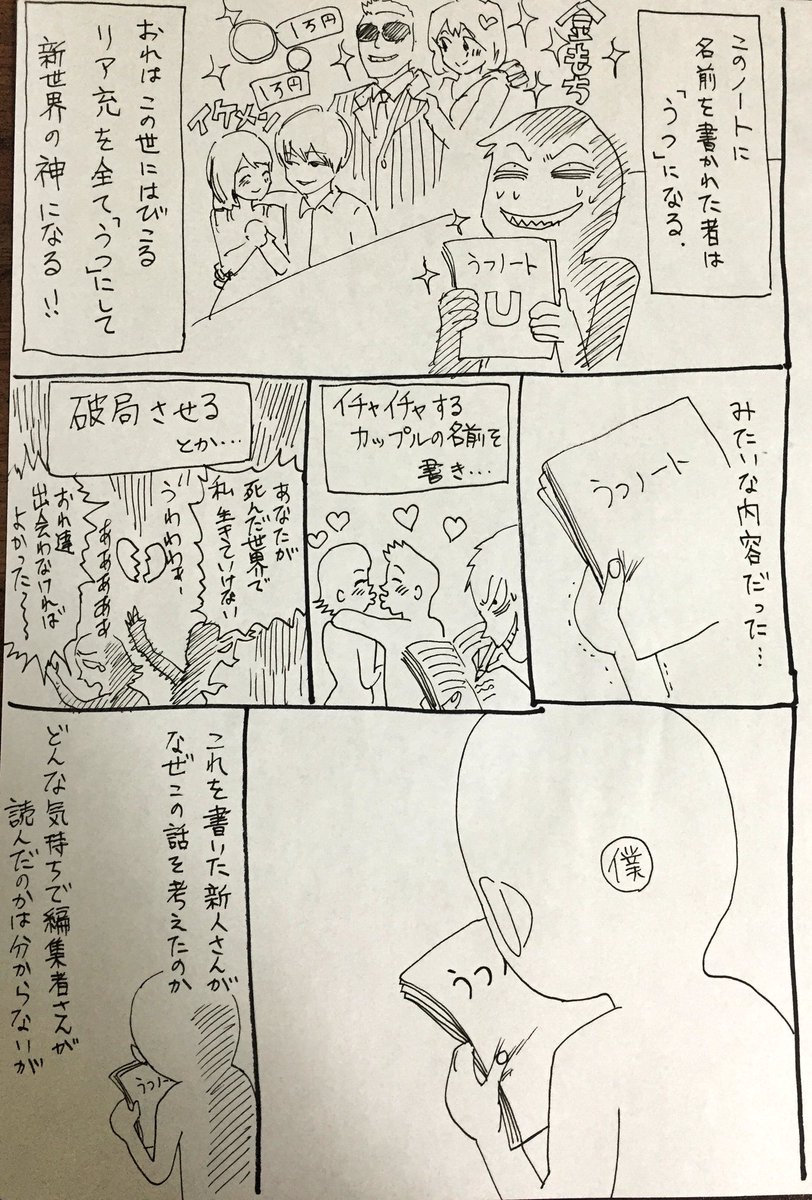 このノートに
名前を書かれた者は
「うつ」になる.
金もち
1万円
1万円
イケメン
うつノート
U
おれはこの世にはびこる
リア充を全て「うつ」にして
新世界の神になる!!
みたいな内容だった…
うつノート
イチャイチャする
カップルの名前を
書き…
破局させる
とか…
あなたが
死んだ世界で
私生きていけない
うわわわぁー
ああああす
おれ達
出会わなければ
よかった〜〜
僕
うつノ
これを書いた新人さんが
なぜこの話を考えたのか
どんな気持ちで編集者さんが
読んだのかは分からないが
うつノー